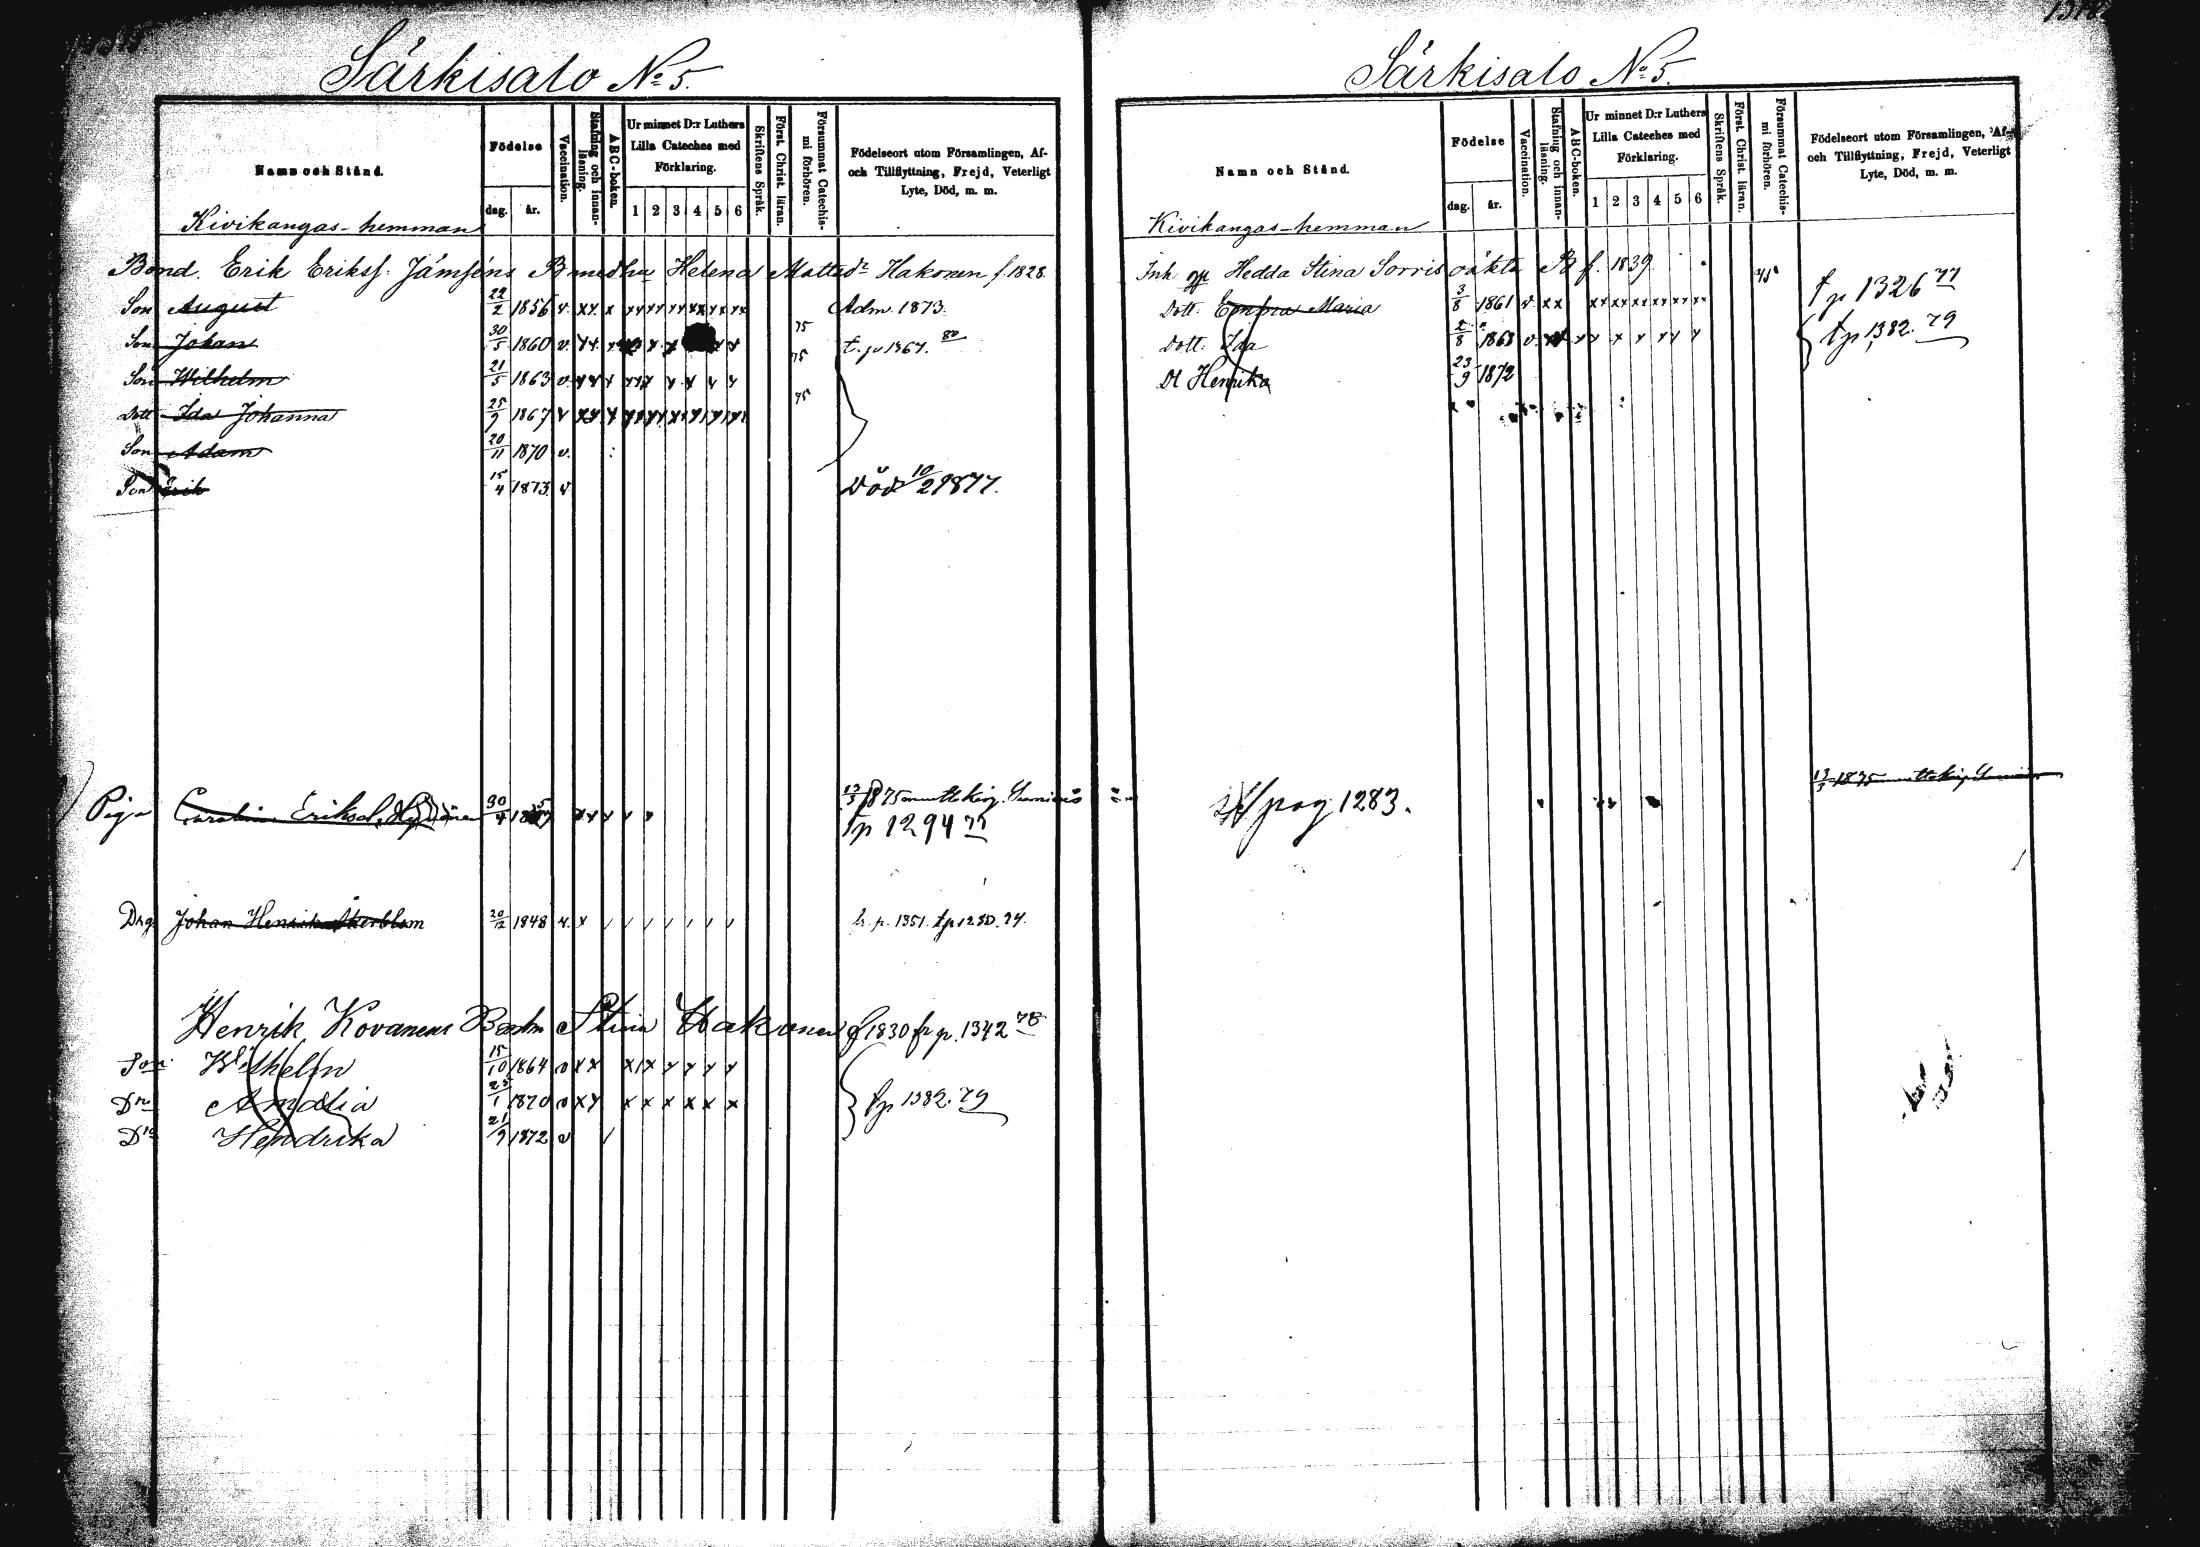 Särkisalo No 5.
Namn och Stånd.
Födelse
dag. år.
Vaccination.
Stafning och innanläsning.
ABC-boken.
Ur minnet D:r Luthers Lilla Cateches med Förklaring.
1 2 3 4 5 6
Skriftens Språk.
Först. Christ. läran.
Försummat Catechismi förhören.
Födelseort utom Församlingen, Af- och Tillflyttning, Frejd, Veterligt Lyte, Död, m. m.
Kivikangas-hemman
Bond. Erik Erikss. Jämsens B med hu Helena Mattsdr Hakonen f. 1828
Son August 22/2 1856 v. xx x xx xx xx xx xx xx Adm. 1873.
Son Johan 30/5 1860 v. 75 t. p 1367. 80
Son Wilhelm 21/5 1863 v 75
Dott Ida Johanna 25/9 1867 v 75
Son Adam 20/11 1870 v.
Son Erik 15/4 1873 v Död 10/2 1877.
Piga Carolina Eriksd. 30/4 1875
tp 1294 77
Drg. Johan Henrik Åkerblom 20/12 1848 v. x fr. p. 1351. tp 1280. 74.
Henrik Kovanens Stina Hakonen f 1830 fr p. 1342 78
Son Wilhelm 15/10 1864 v xx x x x x x x
Dr Amalia 25/1 1870 v xx x x x x x x tp 1382. 79
Dr Hendrika 21/9 1872 v
Särkisalo No 5.
Namn och Stånd.
Födelse
dag. år.
Vaccination.
Stafning och innanläsning.
ABC-boken.
Ur minnet D:r Luthers Lilla Cateches med Förklaring.
1 2 3 4 5 6
Skriftens Språk.
Först. Christ. läran.
Försummat Catechismi förhören.
Födelseort utom Församlingen, Af- och Tillflyttning, Frejd, Veterligt Lyte, Död, m. m.
Kivikangas-hemman
Inh Hedda Stina Sorris oäkta B f. 1839 75
Dott. Emma Maria 3/8 1861 v xx xx xx xx xx xx xx tp 1326 77
Dott. Ida 2/8 1868 v tp 1382. 79
Dt Henrika 23/9 1872
pag 1283.